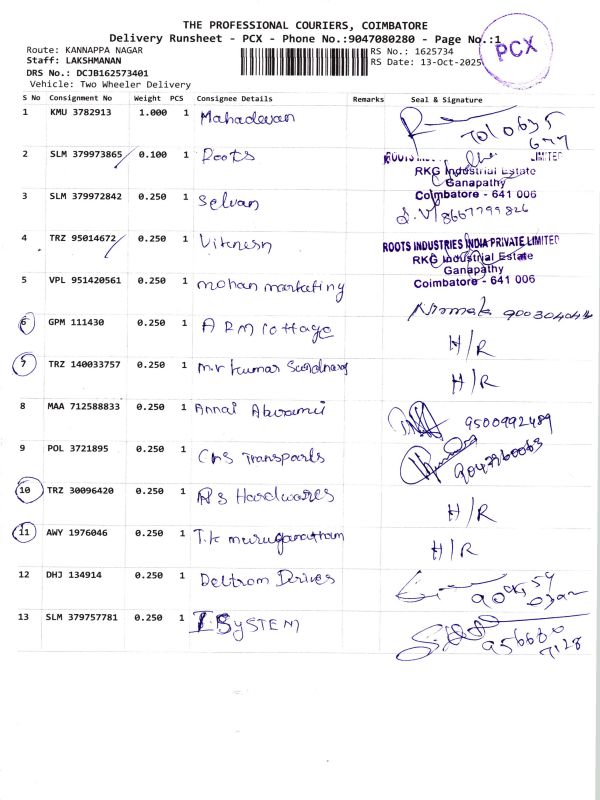 THE PROFESSIONAL COURIERS, COIMBATORE
Delivery Runsheet - PCX - Phone No.:9047080280 - Page No.:1
Route: KANNAPPA NAGAR RS No.: 1625734
Staff: LAKSHMANAN RS Date: 13-Oct-2025
DRS No.: DCJB162573401
Vehicle: Two Wheeler Delivery
PCX
S No Consignment No Weight PCS Consignee Details Remarks Seal & Signature
1 KMU 3782913 1.000 1 Mahadevan
2 SLM 379973865 0.100 1 Roots
ROOTS LIMITED
RKG Industrial Estate
Ganapathy
Coimbatore - 641 006
3 SLM 379972842 0.250 1 Selvan
8667799826
4 TRZ 95014672 0.250 1 Viknesh
ROOTS INDUSTRIES INDIA PRIVATE LIMITED
RKG Industrial Estate
Ganapathy
Coimbatore - 641 006
5 VPL 951420561 0.250 1 mohan marketing
Nirmala
6 GPM 111430 0.250 1 ARM Cottage H/R
7 TRZ 140033757 0.250 1 m.r kumar H/R
8 MAA 712588833 0.250 1 Annai Abirami 9500992489
9 POL 3721895 0.250 1 Transparts
10 TRZ 30096420 0.250 1 Hardwares H/R
11 AWY 1976046 0.250 1 T.k H/R
12 DHJ 134914 0.250 1 Deltrom Drives
13 SLM 379757781 0.250 1 I SySTEM